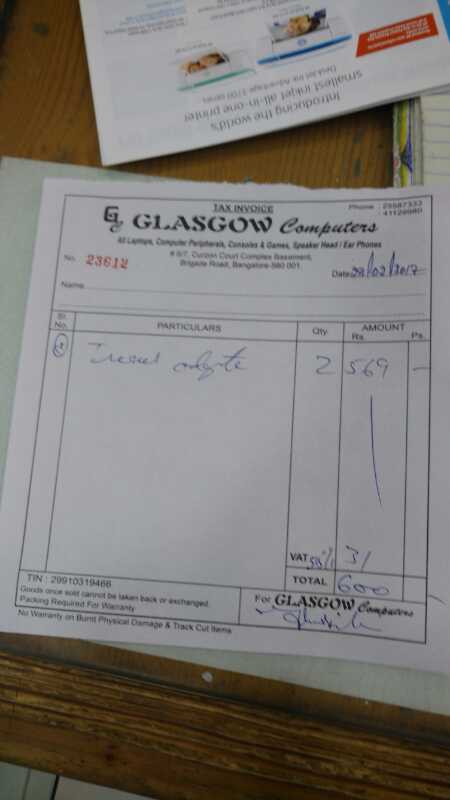 Introducing the world's
smallest inkjet all-in-one printer
DeskJet Ink Advantage 3700 series
TAX INVOICE
Phone : 25587333
41129980
GC GLASGOW Computers
All Laptops, Computer Peripherals, Consoles & Games, Speaker Head / Ear Phones
# 6/7, Curzon Court Complex Basement,
Brigade Road, Bangalore-560 001.
No. 23612
Date 28/02/2017
Name
Sl. No. PARTICULARS Qty. AMOUNT
Rs. Ps.
2 569 —
VAT 5.5% 31
TOTAL 600
TIN : 29910319466
Goods once sold cannot be taken back or exchanged.
Packing Required For Warranty
For GLASGOW Computers
No Warranty on Burnt Physical Damage & Track Cut Items